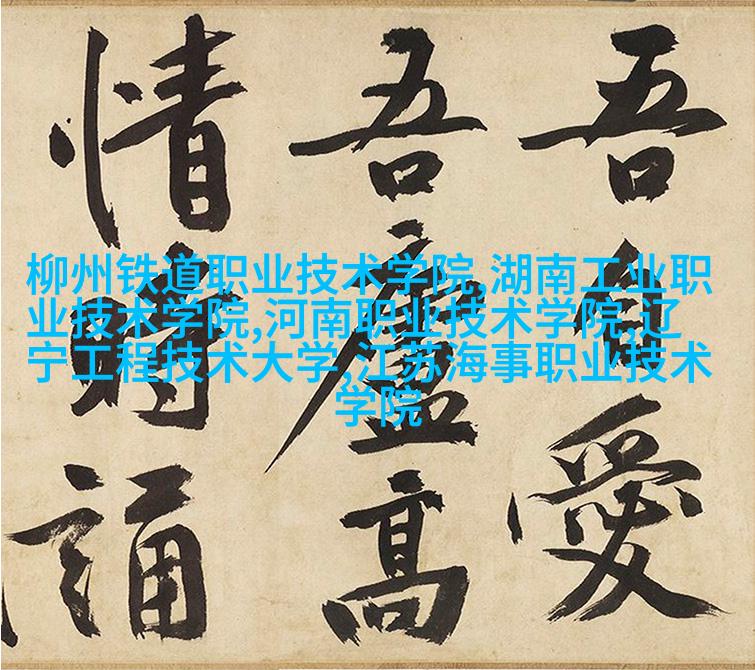 吾自愛
吾廬高
情時誦
柳州铁道职业技术学院,湖南工业职
业技术学院,河南职业技术学院,辽
宁工程技术大学,江苏海事职业技术
学院